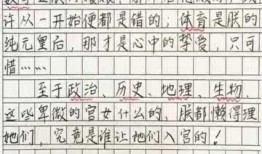 许从一开始便都是错的，体育是朕的
纯元皇后，那才是心中的挚爱，只可
惜……
至于政治、历史、地理、生物，
这些卑微的宫女什么的，朕都懒得理
她们，究竟是谁让她们入宫的！